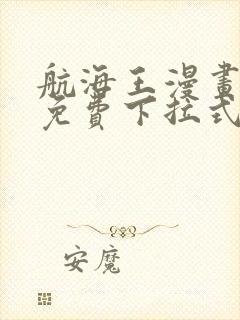 航海王漫畫
免費下拉式
安魔